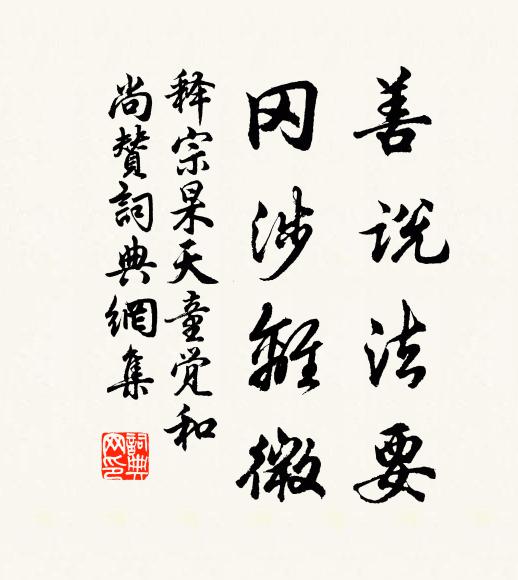 善说法要
罔涉離微
释宗杲天童觉和
尚赞詞典網集
詞典
网印